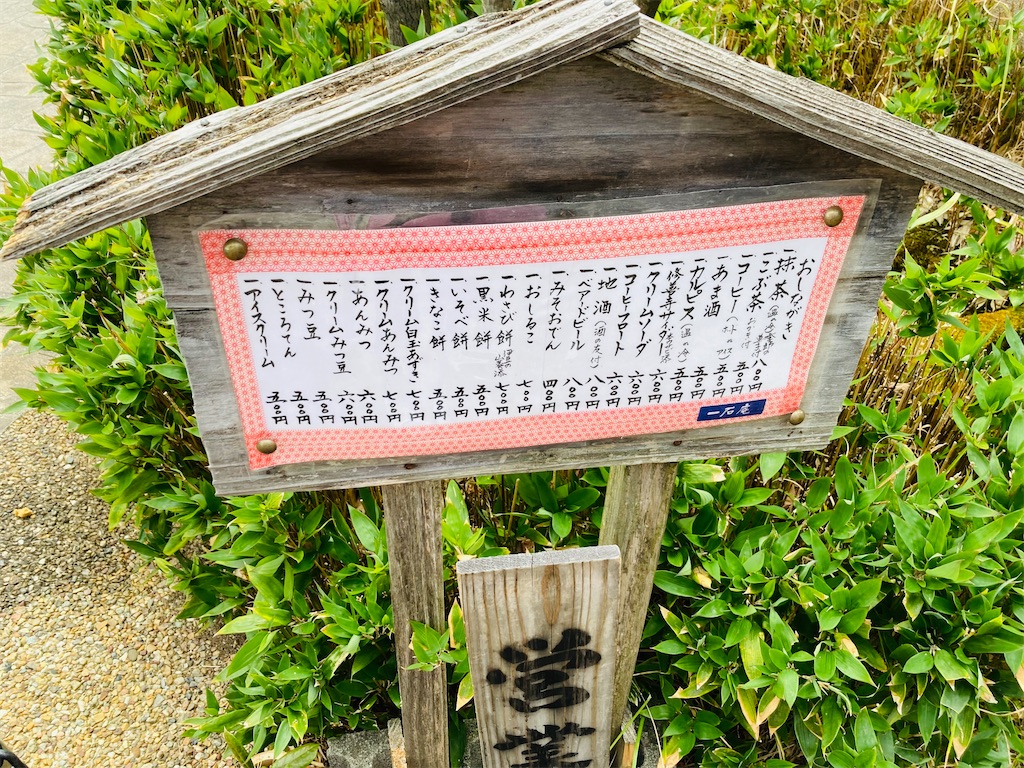 おしながき
一抹茶(温・冷 季節の生菓子付) 八〇〇円
一こぶ茶(おかき付) 五〇〇円
一コーヒー(ホット・アイス) 五〇〇円
一あま酒 五〇〇円
一カルピス(温・冷) 五〇〇円
一修善寺サイダー 六〇〇円
一クリームソーダ 六〇〇円
一コーヒーフロート 六〇〇円
一地酒(酒の友付) 八〇〇円
一ベアードビール 八〇〇円
一みそおでん 四〇〇円
一おしるこ 七〇〇円
一わさび餅 七〇〇円
一黒米餅 五〇〇円
一いそべ餅 五〇〇円
一きなこ餅 五〇〇円
一クリーム白玉あずき 七〇〇円
一クリームあんみつ 七〇〇円
一あんみつ 六〇〇円
一クリームみつ豆 六〇〇円
一みつ豆 五〇〇円
一ところてん 五〇〇円
一アイスクリーム 五〇〇円
一石庵
営業